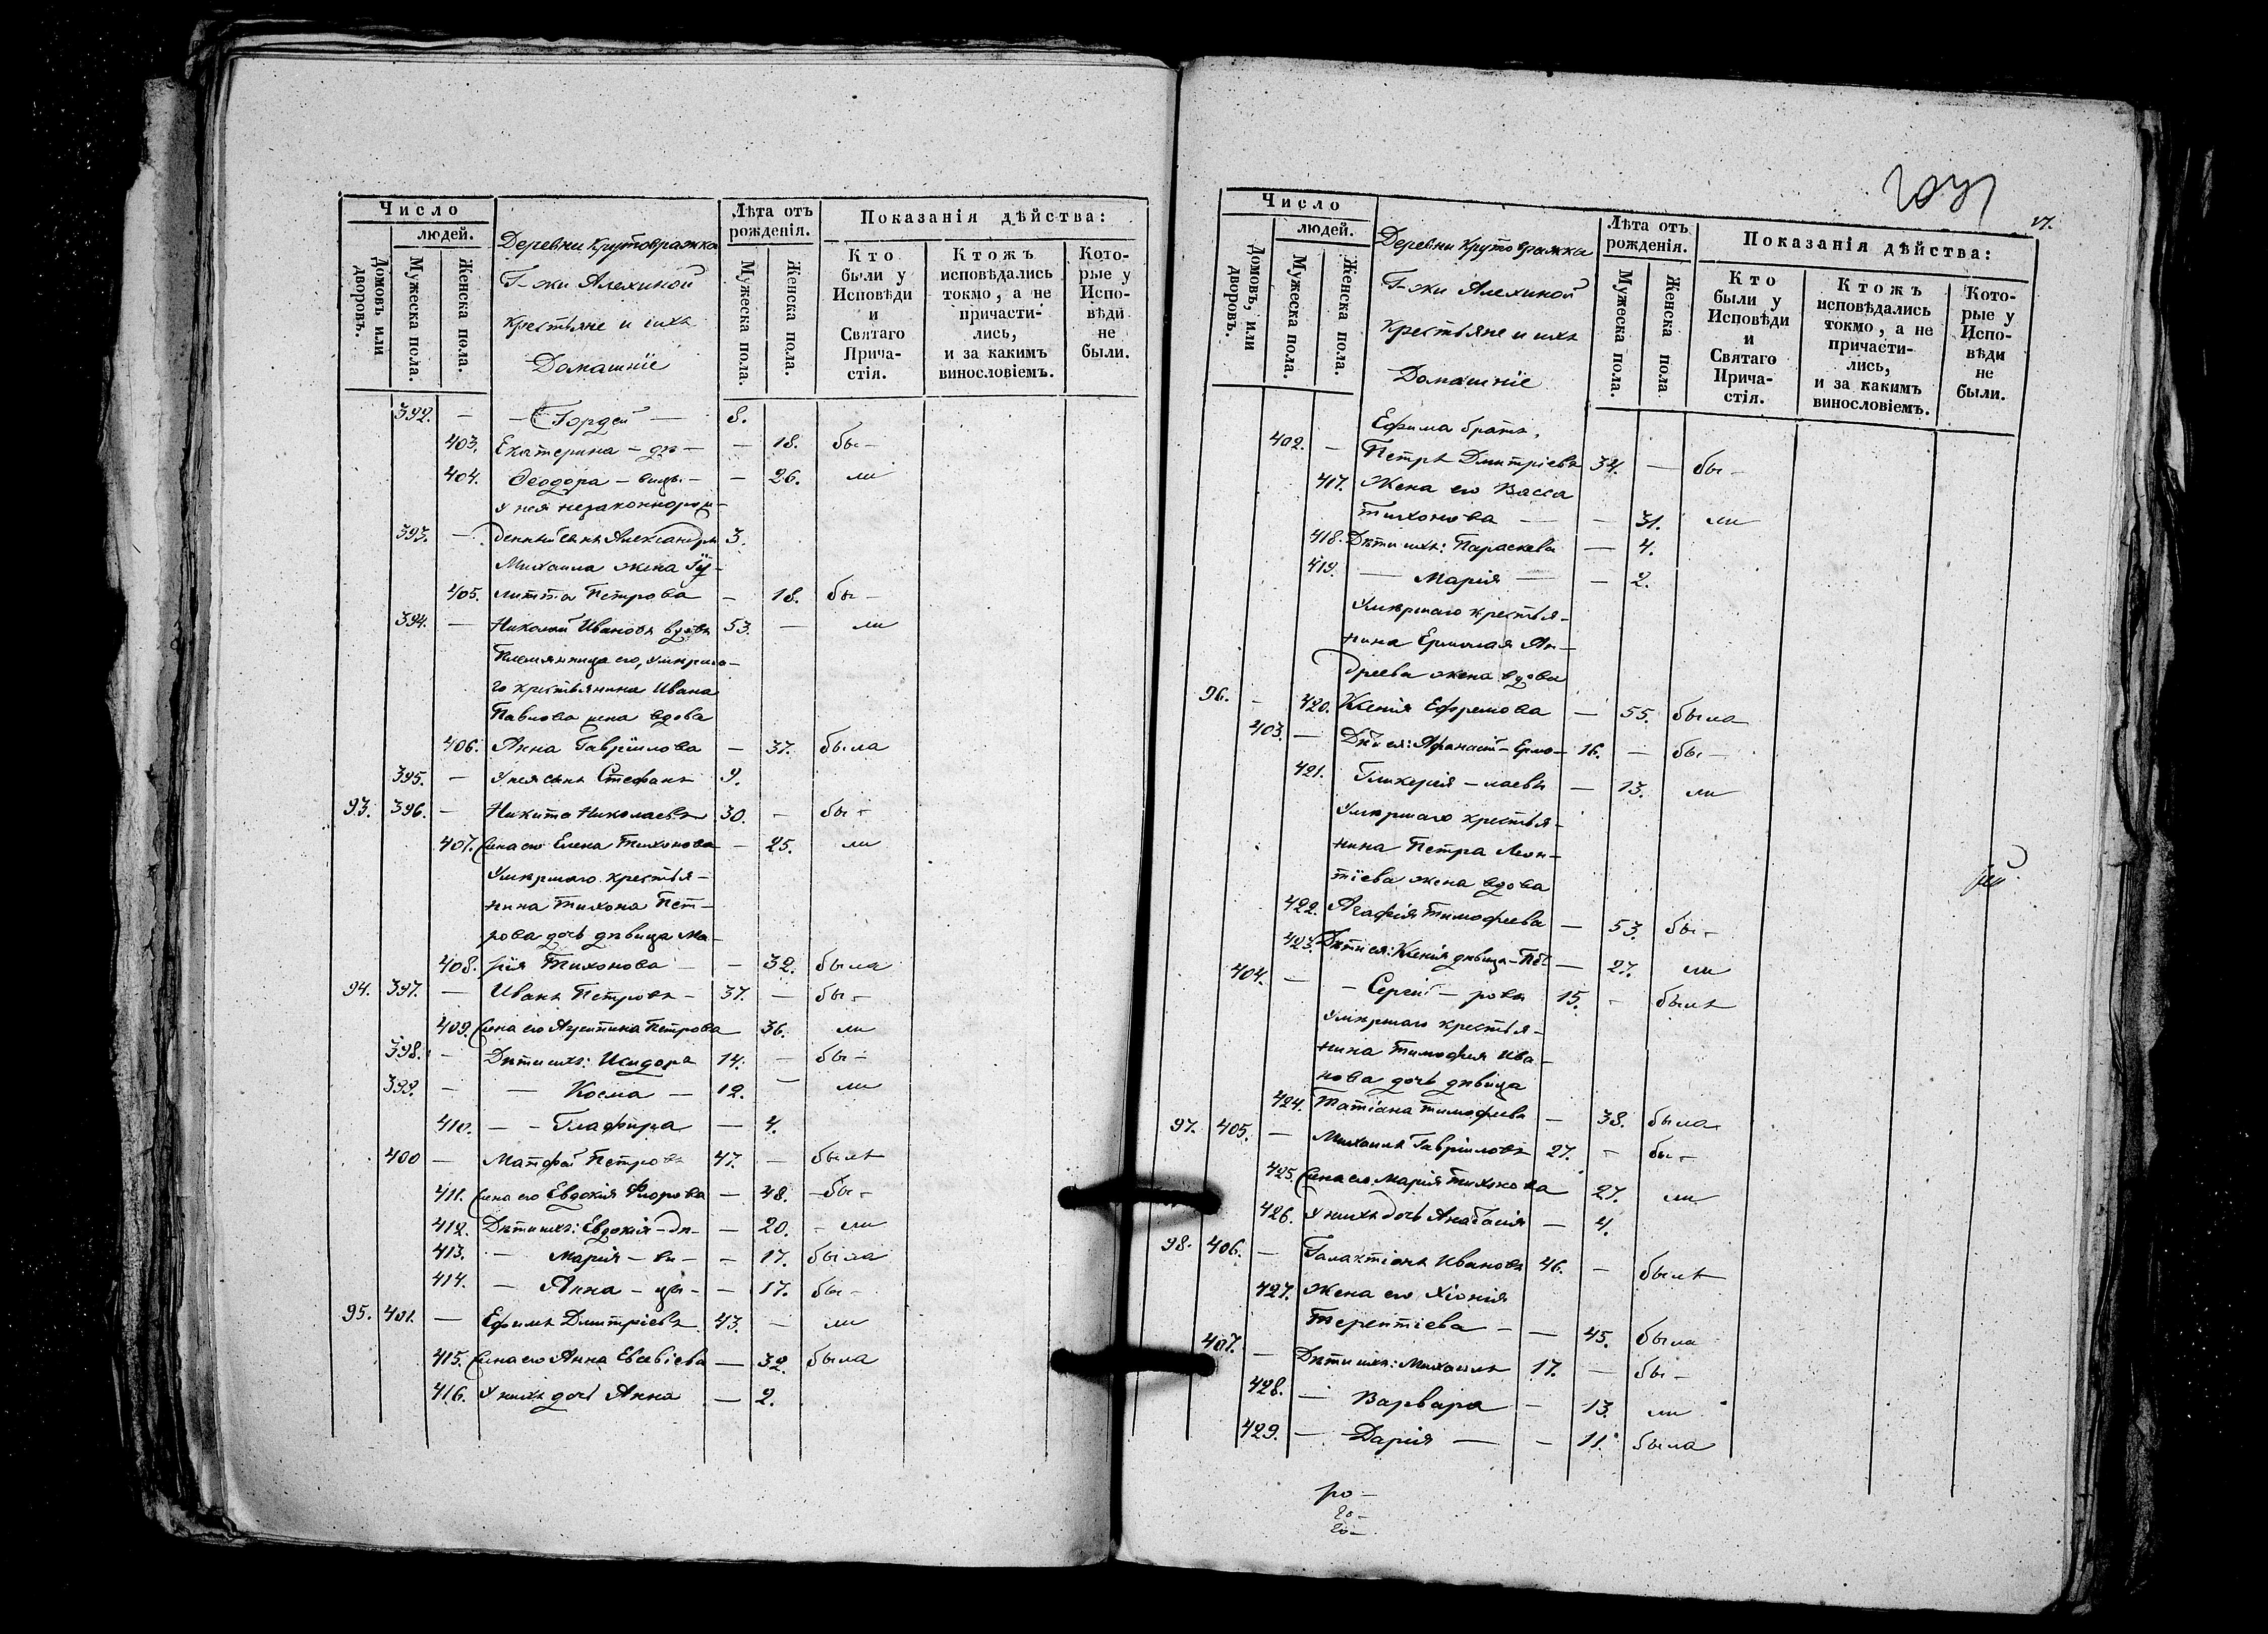 Число
людей.
Домовъ или дворовъ.
Мужеска пола.
Женска пола.
Деревни Крутовражка
Г-жи Алехиной
крестьяне и ихъ
Домашніе
Лѣта отъ рожденія.
Мужеска пола.
Женска пола.
Показанія дѣйства:
Кто были у Исповѣди и Святаго Прича-стія.
Ктожъ исповѣдались токмо, а не причасти-лись, и за какимъ винословіемъ.
Кото-рые у Испо-вѣди не были.
392. — — Гордей — 8.
403. Екатерина — дѣ — — 18. бы —
404. Ѳеодора — вицы — — 26. ли
у нея незаконнорож-
393. — денный сынъ Александръ 3.
Михаила жена Іу-
405. литта Петрова — 18. бы —
394. — Николай Ивановъ вдовъ 53. — ли
Племянница его, умерша-
го крестьянина Ивана
Павлова жена вдова
406. Анна Гавріилова — 37. была
395. — У нея сынъ Стефанъ 9.
93. 396. — Никита Николаевъ 30. — бы —
407. Жена его Елена Тихонова — 25. ли
Умершаго крестья-
нина Тихона Пет-
рова дочь дѣвица Ма-
408. рія Тихонова — — 32. была
94. 397. — Иванъ Петровъ — 37. — бы —
409. Жена его Агрипина Петрова 36. ли
398. — Дѣти ихъ: Исидоръ 14. — бы —
399. — — Косма — 12. — ли
410. — — Глафира — 4.
400 — Матфей Петровъ 47. — былъ
411. Жена его Евдокія Флорова — 48. — бы —
412. Дѣти ихъ: Евдокія — дѣ — — 20. — ли
413. — Марія — ви — — 17. была
414. — Анна — цы — — 17. бы —
95. 401. — Ефимъ Дмитріевъ 43. — ли
415. Жена его Анна Евсевіева — 32. была
416. У нихъ дочь Анна — 2.
17.
Число
людей.
Домовъ, или дворовъ.
Мужеска пола.
Женска пола.
Деревни Крутовражка
Г-жи Алехиной
Крестьяне и ихъ
Домашніе
Лѣта отъ рожденія.
Мужеска пола.
Женска пола
Показанія дѣйства:
Кто были у Исповѣди и Святаго Прича-стія.
Ктожъ исповѣдались токмо, а не причасти-лись, и за какимъ винословіемъ.
Кото-рые у Испо-вѣди не были.
Ефима братъ,
402. — Петръ Дмитріевъ 34. — бы —
417. Жена его Васса
Тихонова — — 31. ли
418. Дѣти ихъ: Параскева — 4.
419. — Марія — — 2.
Умершаго крестья-
нина Ермолая Ан-
дреева жена вдова
96. — 420. Ксенія Ефремова — 55. была
403. — Дѣти ея: Афанасій — Ермо — 16. — бы —
421. Гликерія — лаевы — 13. ли
Умершаго крестья-
нина Петра Леон-
тіева жена вдова
422. Агафія Тимофеева — 53. бы —
423. Дѣти ея: Ксенія дѣвица — Пет — 27. ли
404. — — Сергей — ровы 15. — былъ
Умершаго крестья-
нина Тимофея Ива-
нова дочь дѣвица
424. Татіана Тимофеева — 38. была
97. 405. — Михаилъ Гавріиловъ 27. — бы —
425. Жена его Марія Тихонова 27. ли
426. У нихъ дочь Анастасія — 4.
98. 406. — Галактіонъ Ивановъ 46. — былъ
427. Жена его Хіонія
Терентіева — — 45. была
407. — Дѣти ихъ: Михаилъ 17. — бы —
428. — Варвара — 13. ли
429. — Дарія — — 11. была
ро —